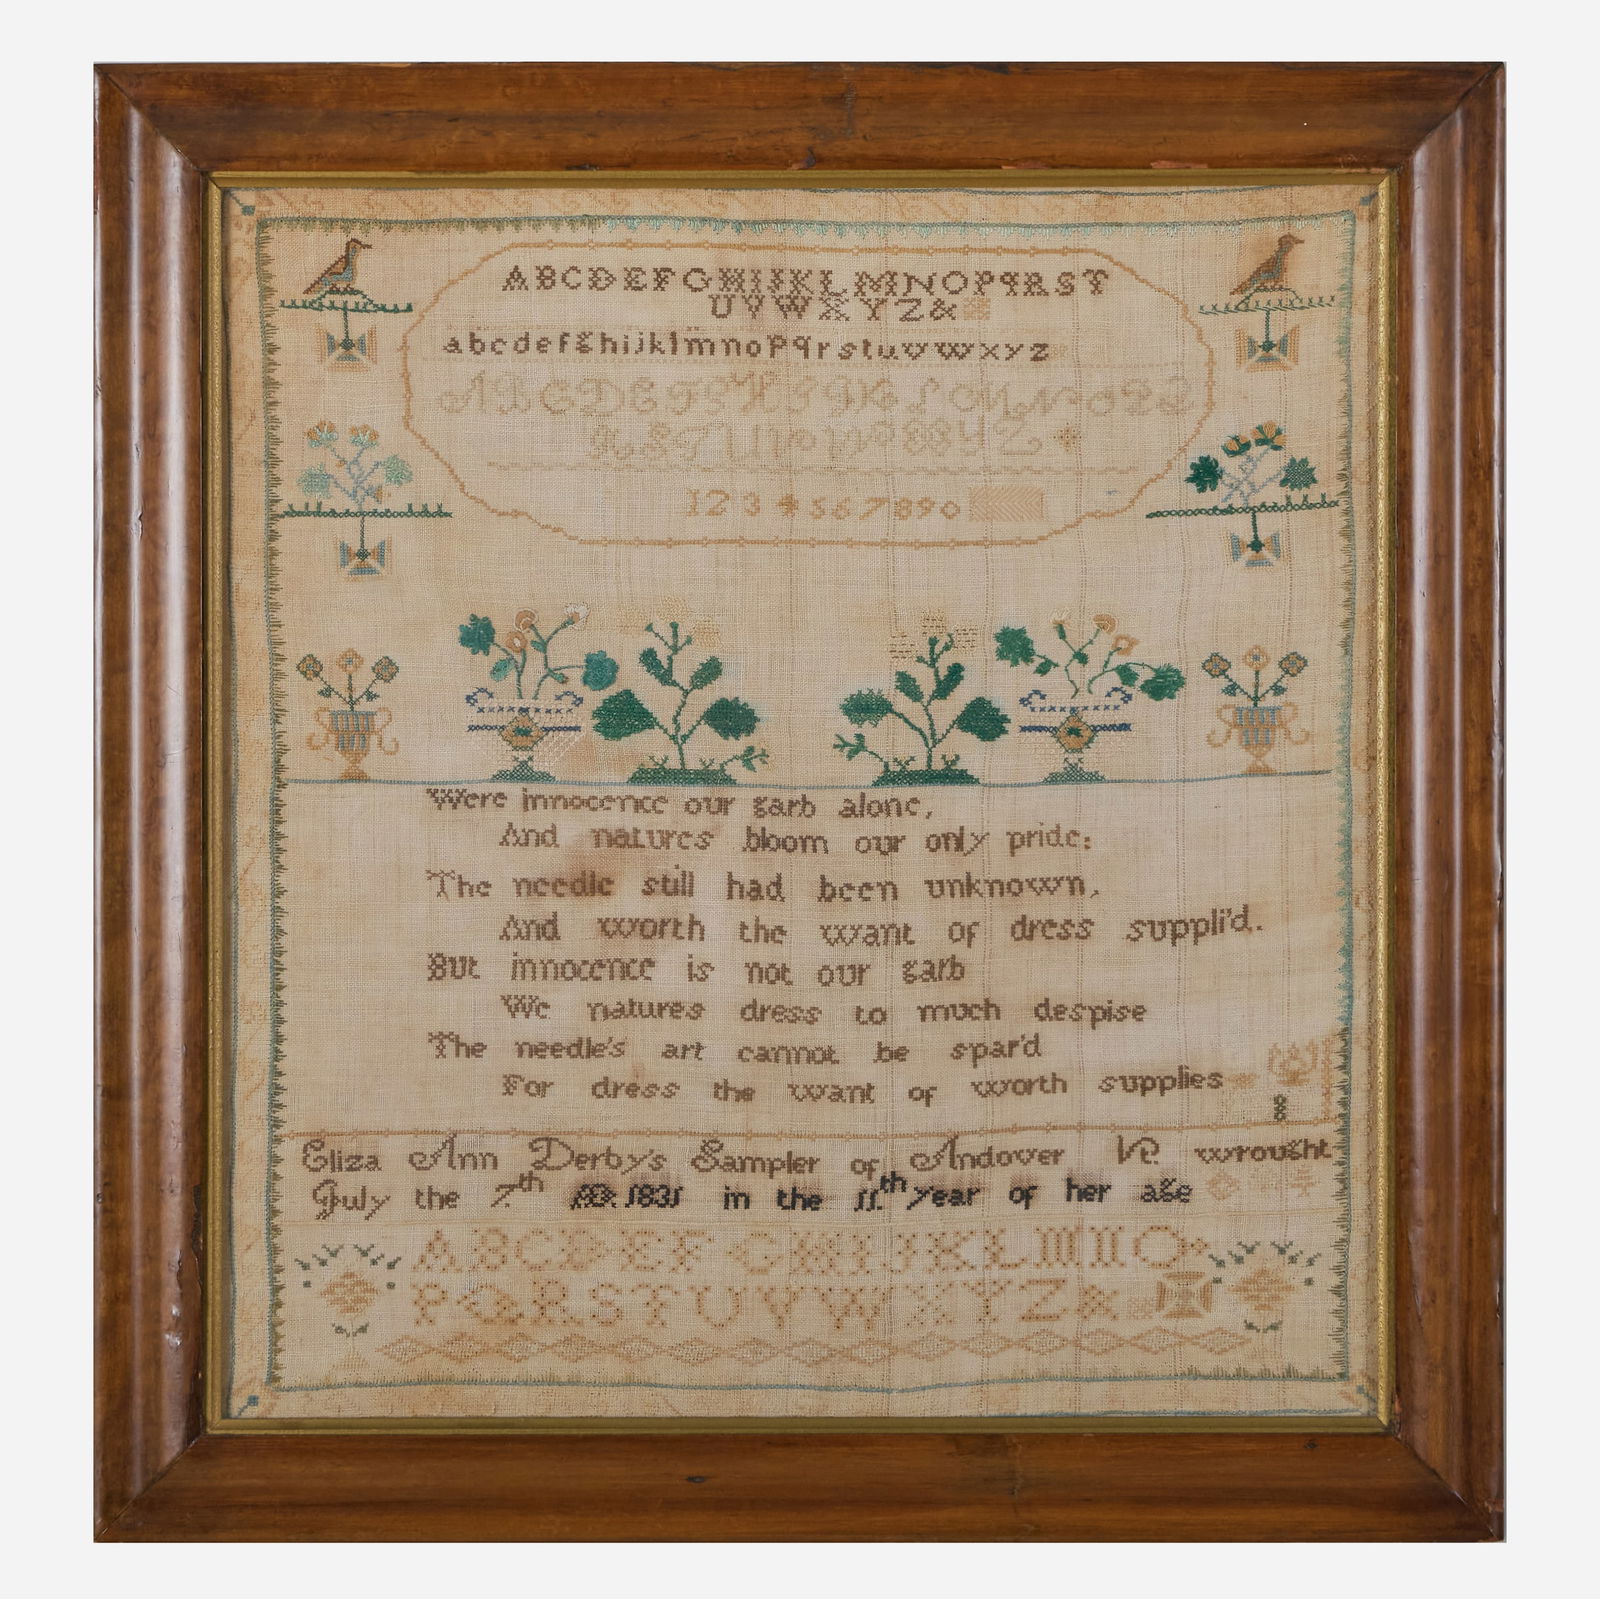 ABCDEFGHIJKLMNOPQRST
UVWXYZ&
abcdefghijklmnopqrstuvwxyz
ABCDEFGHIJKLMNOPQ
RSTUVWXYZ
1234567890
Were innocence our garb alone,
And natures bloom our only pride:
The needle still had been unknown,
And worth the want of dress suppli'd.
But innocence is not our garb
We natures dress to much despise
The needle's art cannot be spar'd
For dress the want of worth supplies
Eliza Ann Derby's Sampler of Andover Vt. wrought
July the 7.th AD. 1831 in the 11.th year of her age
ABCDEFGHIJKLMNO
PQRSTUVWXYZ&